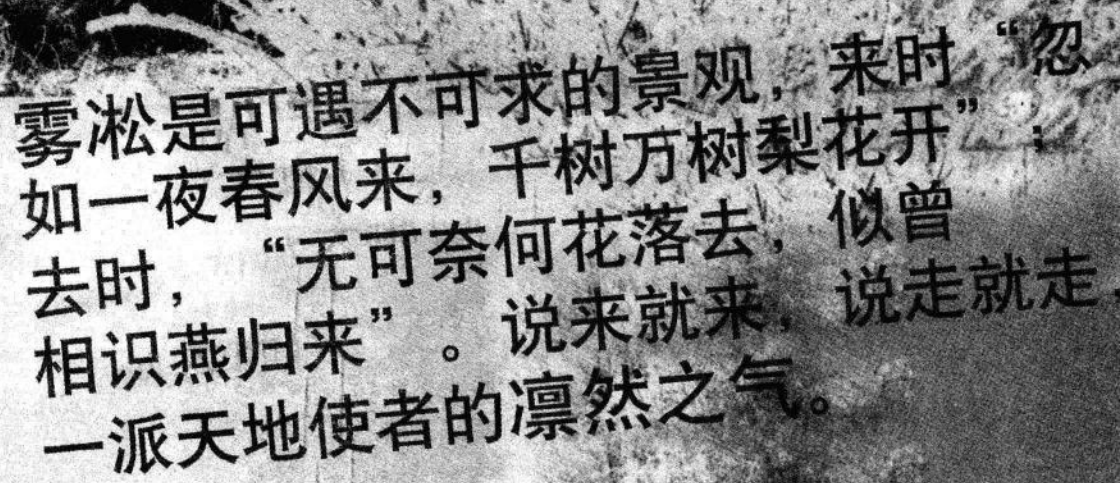 雾凇是可遇不可求的景观，来时“忽
如一夜春风来，千树万树梨花开”；
去时，“无可奈何花落去，似曾
相识燕归来”。说来就来，说走就走，
一派天地使者的凛然之气。